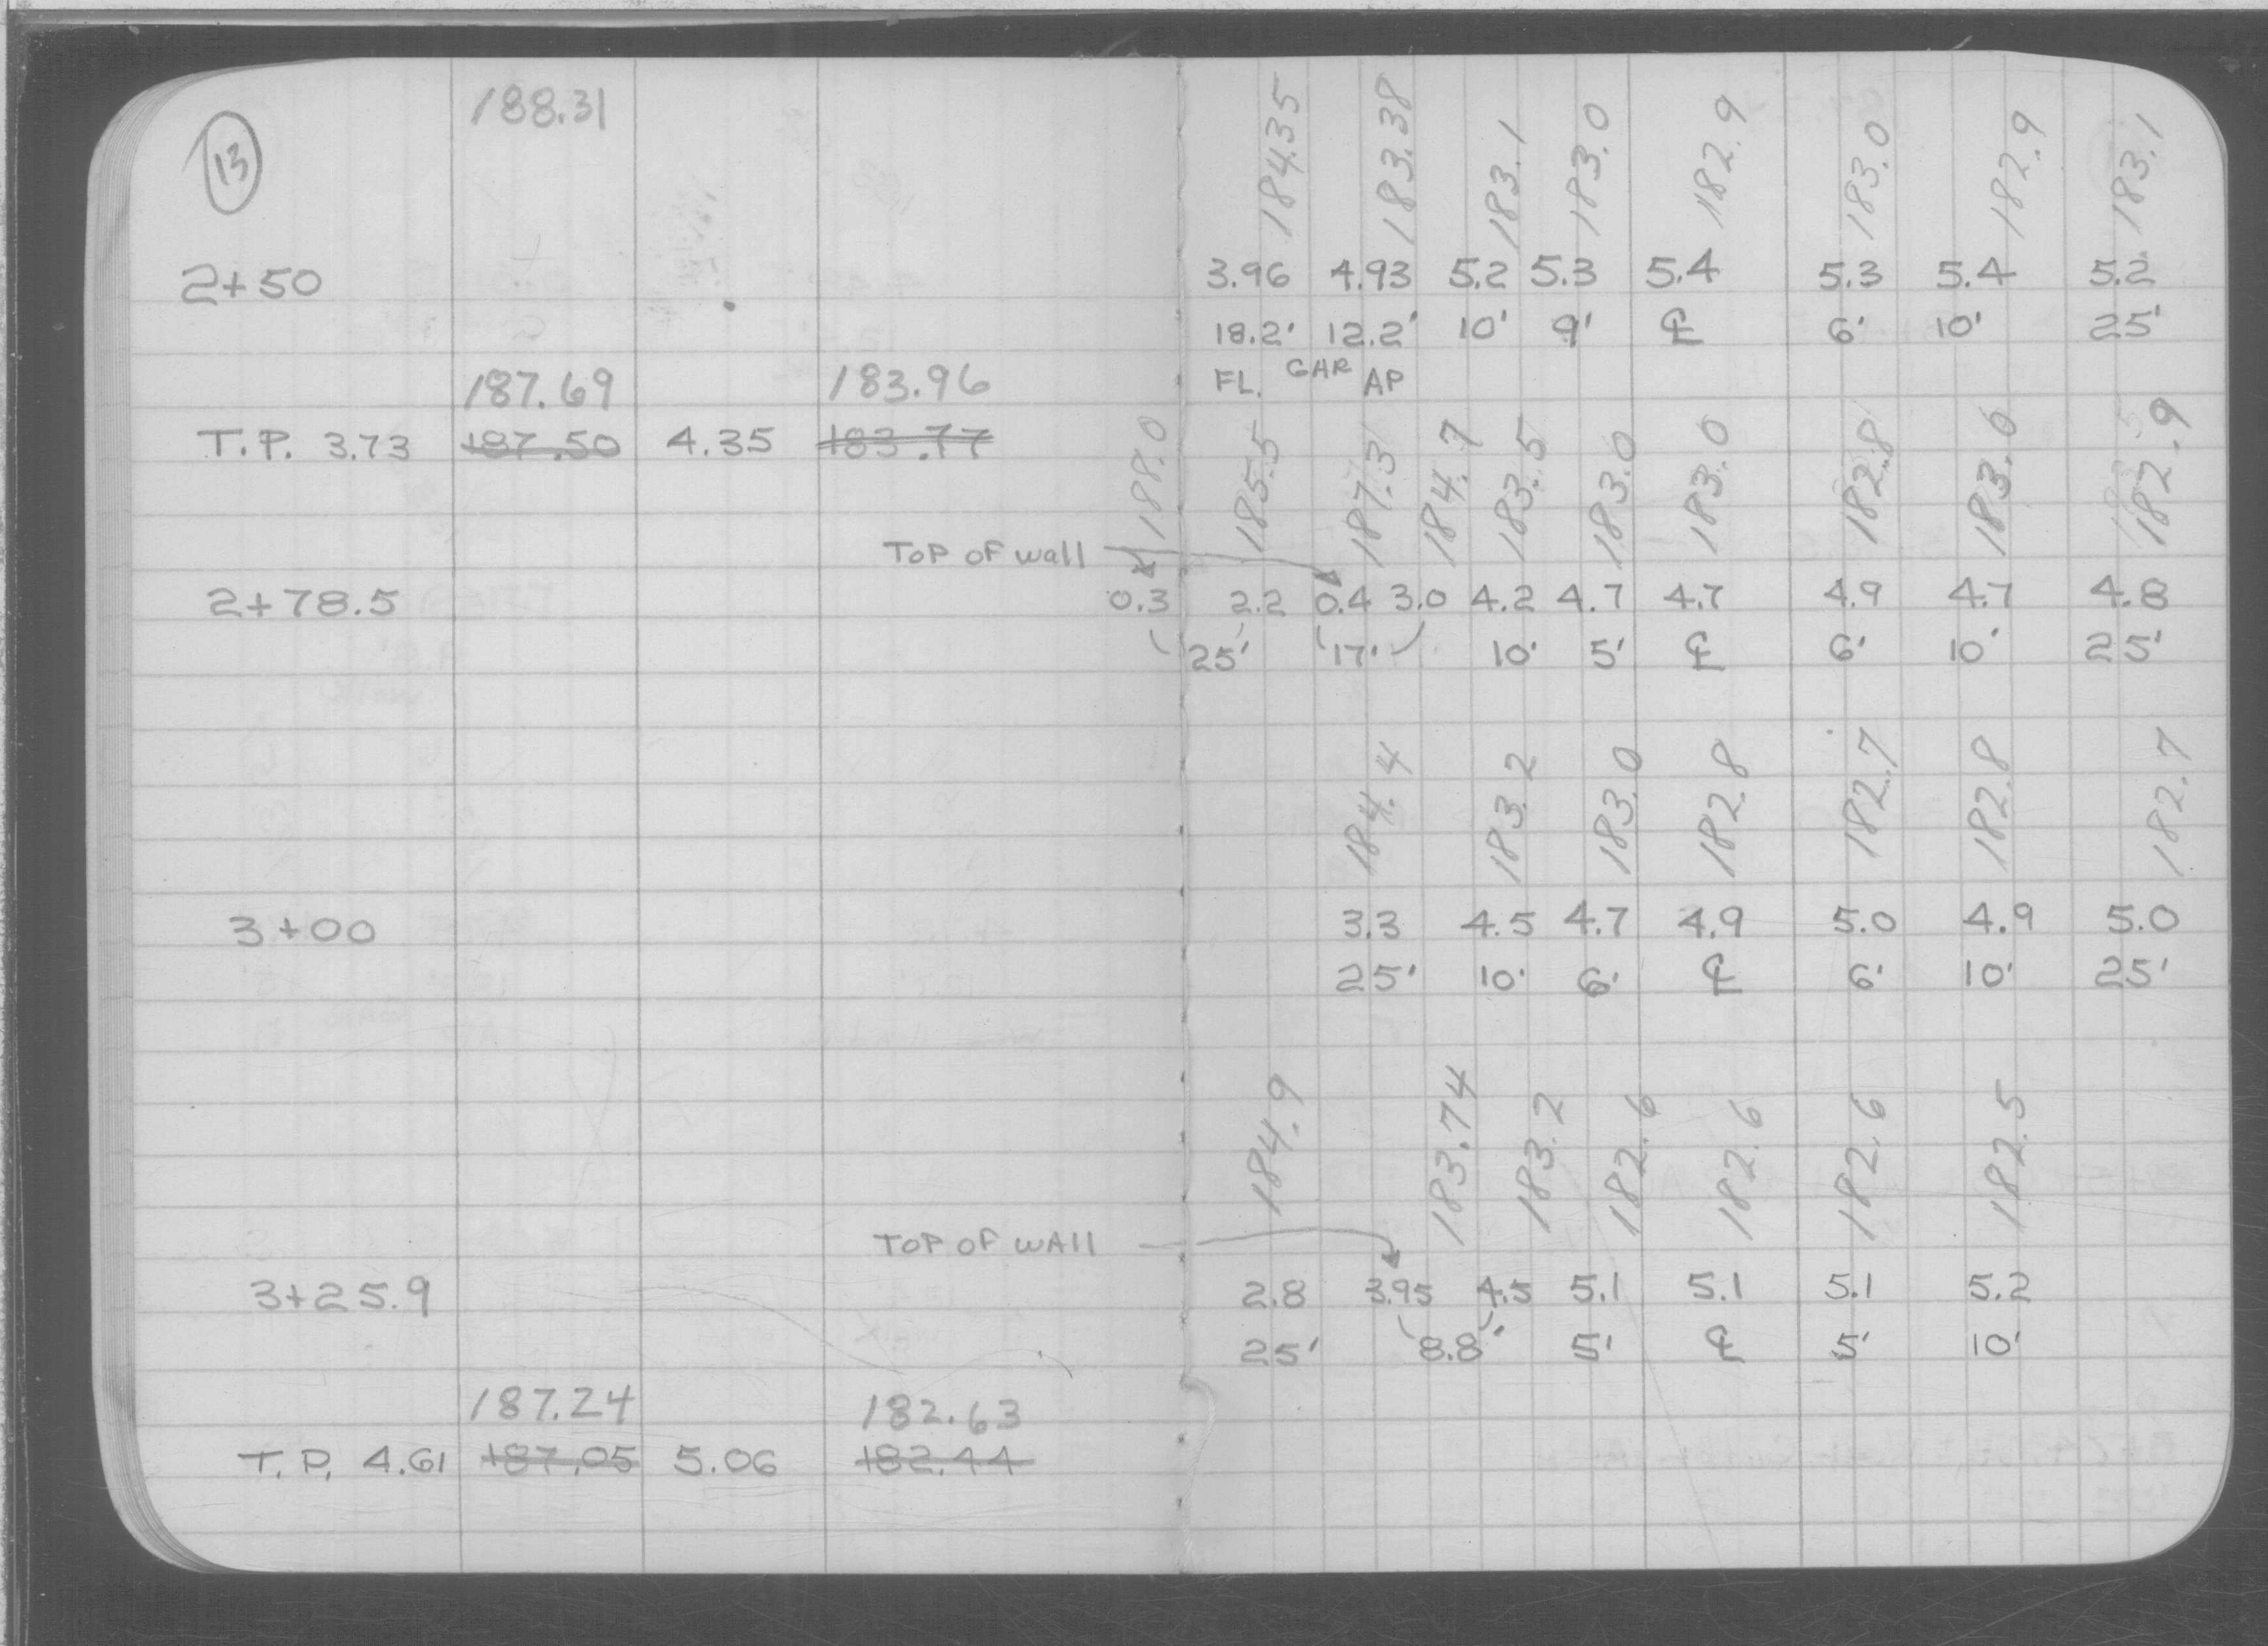 188.31
13
184.35 183.38 183.1 183.0 182.9 183.0 182.9 183.1
2+50 3.96 4.93 5.2 5.3 5.4 5.3 5.4 5.2
18.2' 12.2' 10' 9' ℄ 6' 10' 25'
FL. GAR AP
187.69 183.96
T.P. 3.73 187.50 4.35 183.77
188.0 185.5 187.3 184.7 183.5 183.0 183.0 182.8 183.0 182.9
TOP OF WALL
2+78.5 0.3 2.2 0.4 3.0 4.2 4.7 4.7 4.9 4.7 4.8
25' 17' 10' 5' ℄ 6' 10' 25'
184.4 183.2 183.0 182.8 182.7 182.8 182.7
3+00 3.3 4.5 4.7 4.9 5.0 4.9 5.0
25' 10' 6' ℄ 6' 10' 25'
184.9 183.74 183.2 182.6 182.6 182.6 182.5
TOP OF WALL
3+25.9 2.8 3.95 4.5 5.1 5.1 5.1 5.2
25' 8.8' 5' ℄ 5' 10'
187.24 182.63
T.P. 4.61 187.05 5.06 182.44